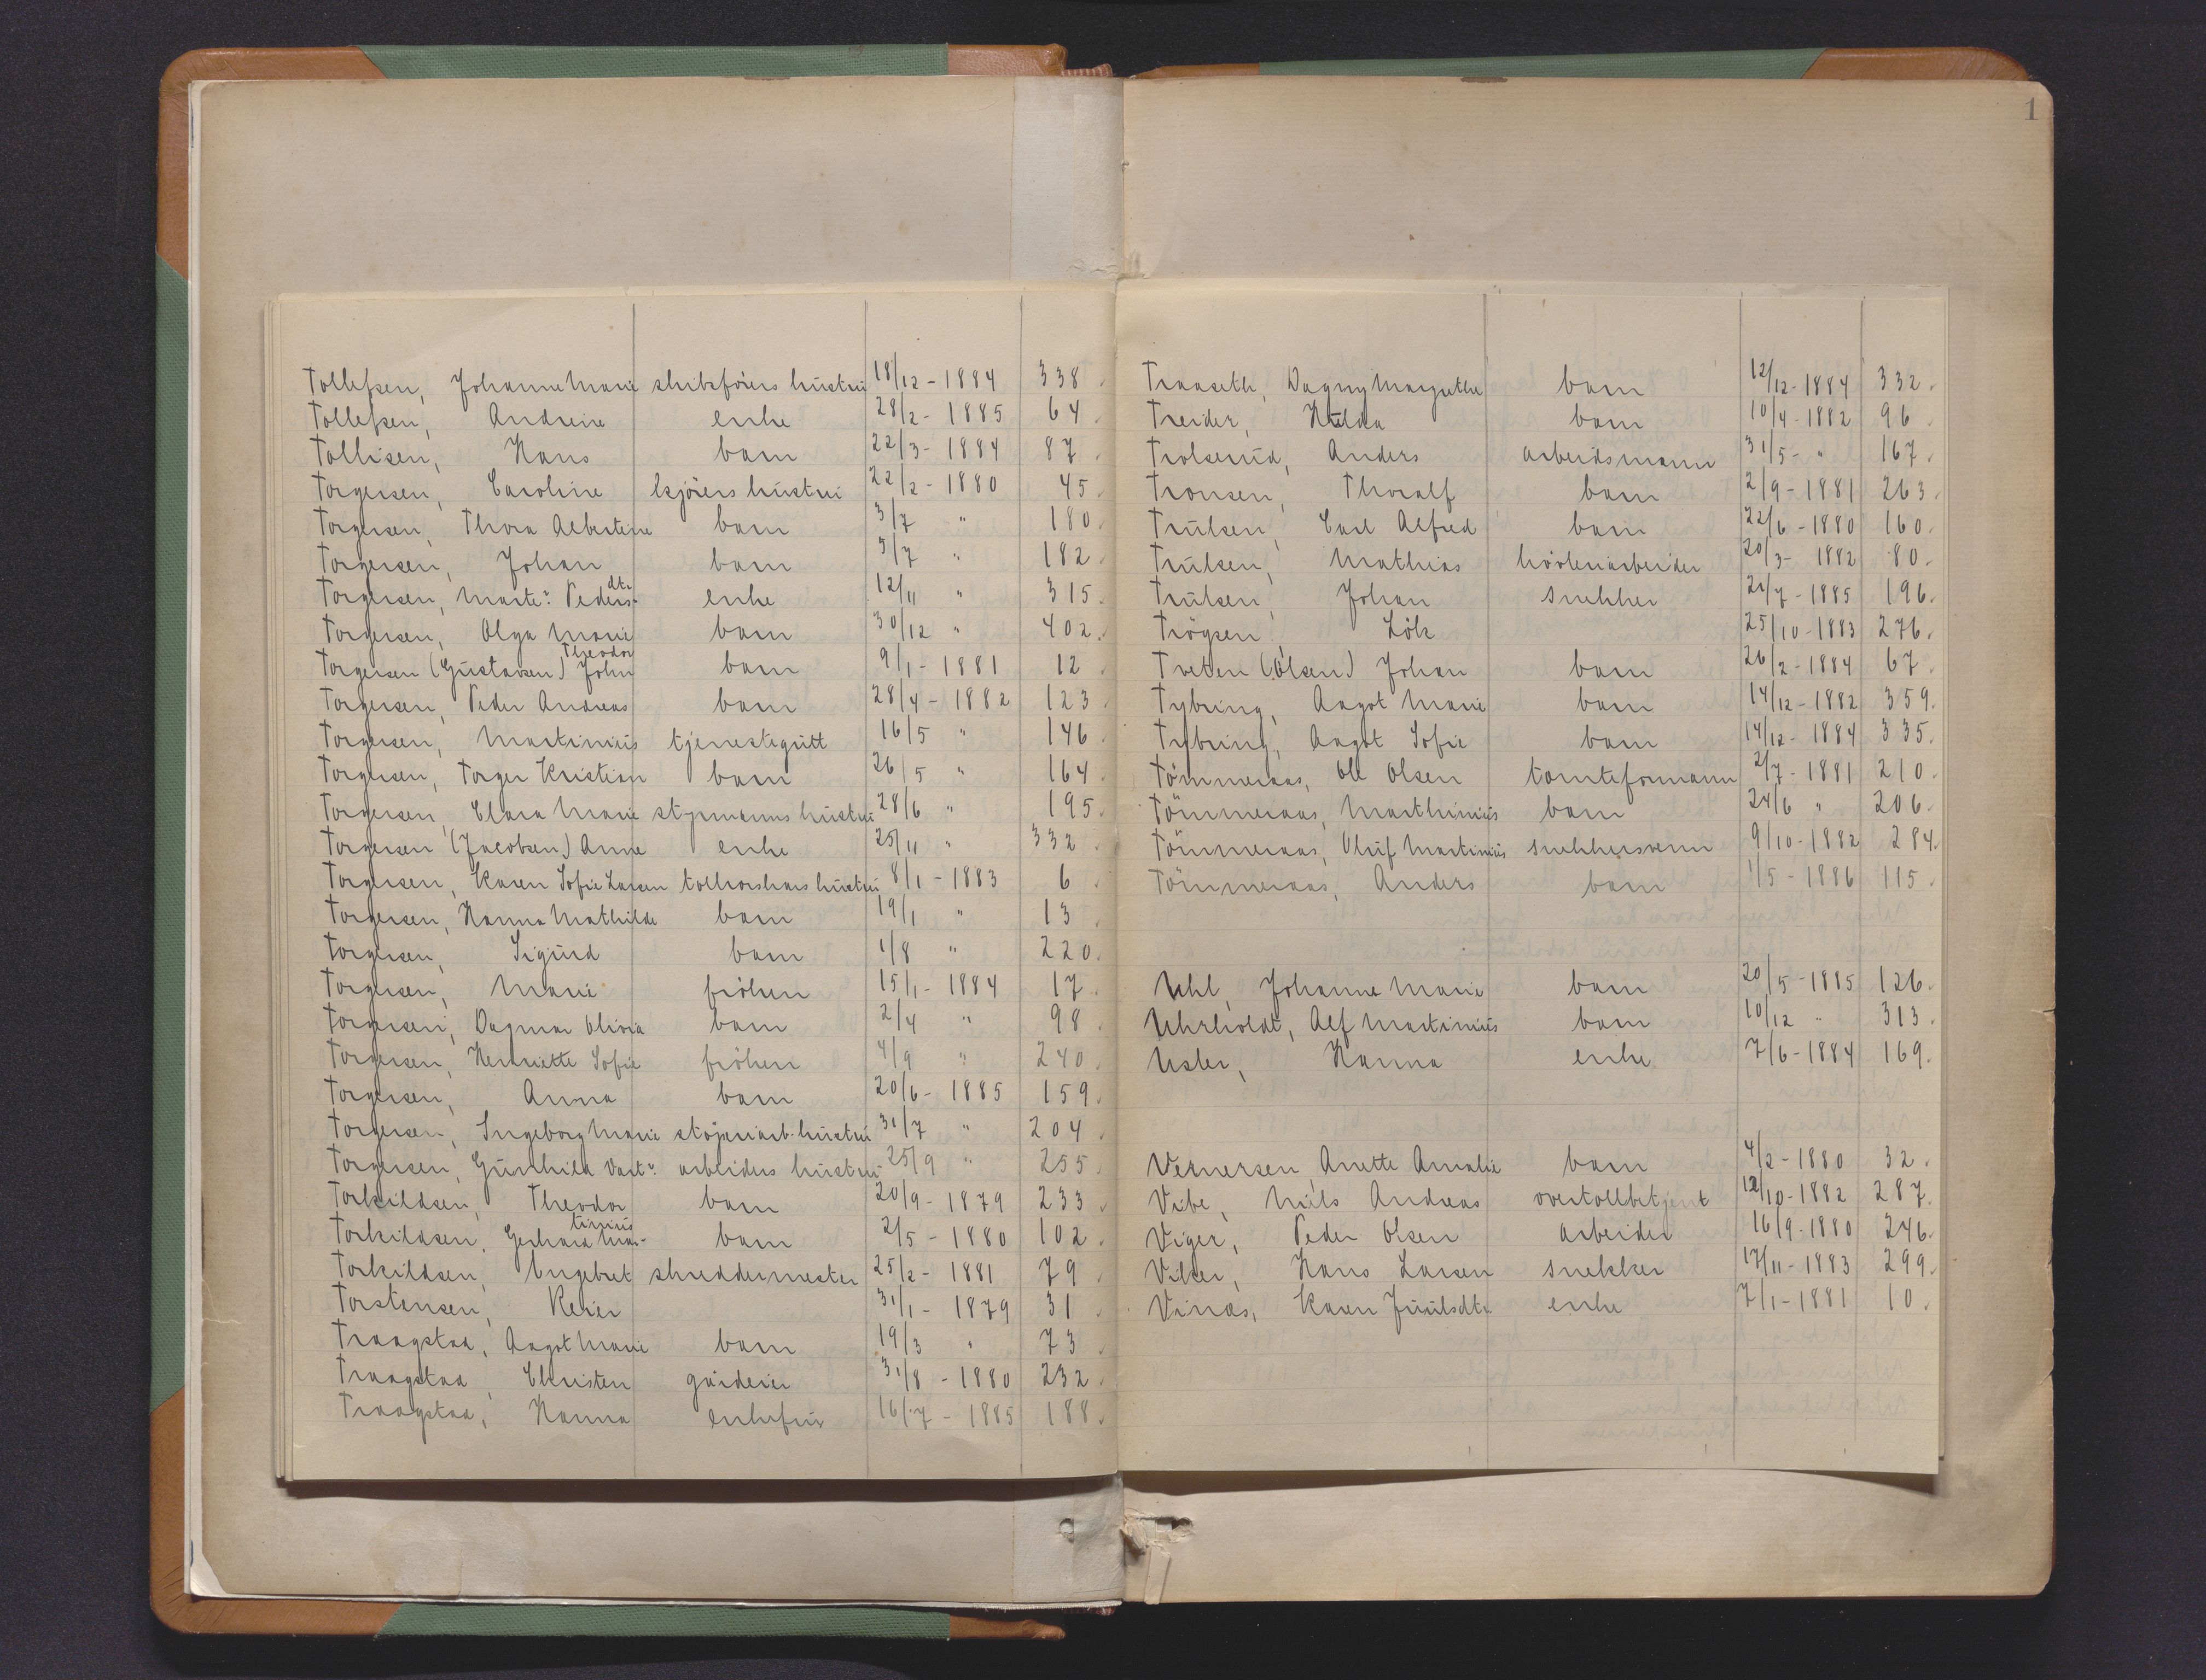 Tollefsen, Johanne Marie skibsförers hustru 18/12 - 1884 338.
Tollefsen, Andreine enke 28/2 - 1885 64.
Tollisen, Hans barn 22/3 - 1884 87.
Torgersen, Caroline kjörers hustru 22/2 - 1880 45.
Torgersen, Thora Albertine barn 3/7 " 180.
Torgersen, Johan barn 5/7 " 182.
Torgersen, Marte Pedersdtr. enke 12/11 " 315.
Torgersen, Olga Marie barn 30/12 " 402.
Torgersen (Gustavsen) John Theodor barn 9/1 - 1881 12
Torgersen, Peder Andreas barn 28/4 - 1882 123
Torgersen, Martinius tjenestegutt 16/5 " 146.
Torgersen, Torger Kristian barn 26/5 " 164
Torgersen, Clara Marie styrmanns hustru 28/6 " 195.
Torgersen (Jacobsen) Anne enke 25/11 " 332.
Torgersen, Karen Sofie Larsen hustru 8/1 - 1883 6.
Torgersen, Hanna Mathilde barn 19/1 " 13.
Torgersen, Sigurd barn 1/8 " 220.
Torgersen, Marie fröken 15/1 - 1884 17.
Torgersen, Dagmar Olivia barn 2/4 " 98.
Torgersen, Henriette Sofie fröken 4/9 " 240.
Torgersen, Anna barn 20/6 - 1885 159.
Torgersen, Ingeborg Marie støperiarb. hustru 31/7 " 204.
Torgersen, Gunhild arbeiders hustru 25/9 " 255.
Torkildsen, Theodor barn 20/9 - 1879 233.
Torkildsen, Gerhard Martinius barn 2/5 - 1880 102.
Torkildsen, Engebret skreddermester 25/2 - 1881 79.
Torstensen, Reier 31/1 - 1879 31.
Traagstad, Aagot Marie barn 19/3 " 73.
Traagstad, Christen gårdeier 31/8 - 1880 232.
Traagstad, Hanna enkefru 16/7 - 1885 188.
1
Traaseth, Dagny Margrethe barn 12/12 - 1884 332.
Treider, Hilda barn 10/4 - 1882 96.
Trolserud, Anders arbeidsmann 31/5 - " 167.
Tronsen, Thoralf barn 2/9 - 1881 263.
Trulsen, Carl Alfred barn 22/6 - 1880 160.
Trulsen, Mathias hövleriarbeider 20/3 - 1882 80.
Trulsen, Johan snekker 21/7 - 1885 196.
Trögsen, Lök 25/10 - 1883 276.
Treten (Olsen) Johan barn 26/2 - 1884 67.
Tybring, Aagot Marie barn 14/12 - 1882 359.
Tybring, Aagot Sofie barn 14/12 - 1884 335.
Tömmeraas, Ole Olsen tomteformann 2/7 - 1881 210.
Tömmeraas, Marthinius barn 24/6 " 206.
Tömmeraas, Oluf Martinius snekkersvenn 9/10 - 1882 284.
Tömmeraas, Anders barn 1/5 - 1886 115.
Uhl, Johanne Marie barn 20/5 - 1885 126.
Uhrholdt, Alf Martinius barn 10/12 " 313.
Usler, Hanna enke 7/6 - 1884 169.
Vernersen, Anette Amalie barn 4/2 - 1880 32.
Vibe, Nils Andreas overtollbetjent 12/10 - 1882 287.
Viger, Peder Olsen arbeider 16/9 - 1880 246.
Vilser, Hans Larsen snekker 17/11 - 1883 299.
Vinas, Karen Juulsdtr enke 7/1 - 1881 10.